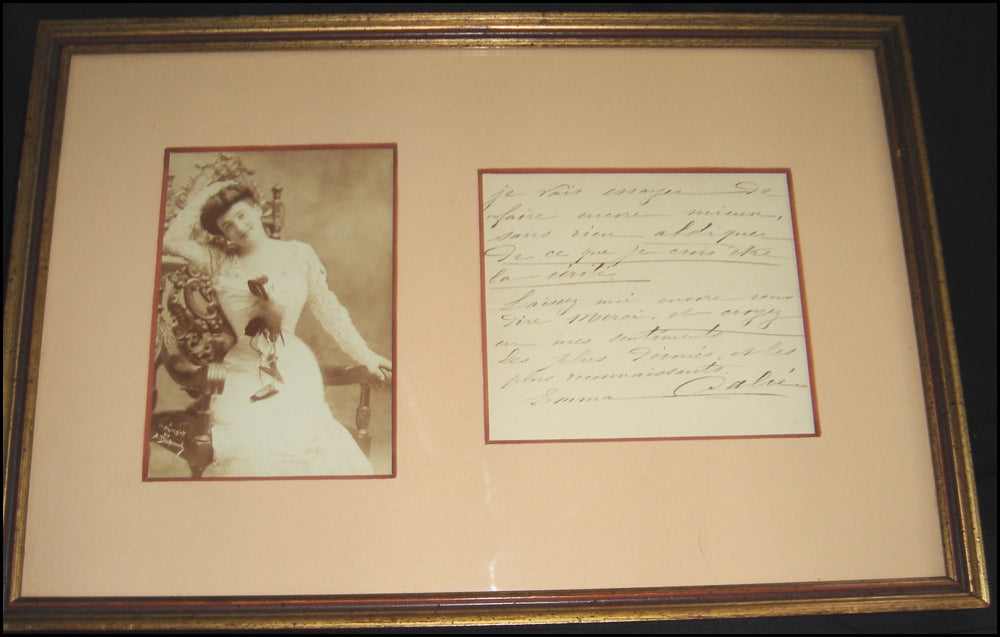 je vais essayer de
faire encore mieux,
sans rien abdiquer
de ce que je crois être
la vérité.
Laissez moi encore vous
dire merci. et croyez
en mes sentiments
les plus dévoués, et les
plus reconnaissants.
Emma Calvé